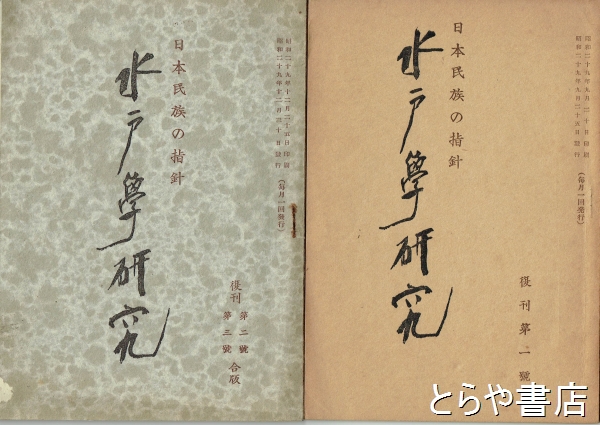 昭和二十九年十二月二十五日印刷
昭和二十九年十二月三十日発行
(毎月一回発行)
日本民族の指針
水戸學研究
復刊 第二號 第三號 合版
昭和二十九年九月二十日印刷
昭和二十九年九月二十五日発行
(毎月一回発行)
日本民族の指針
水戸學研究
復刊第一號
とらや書店